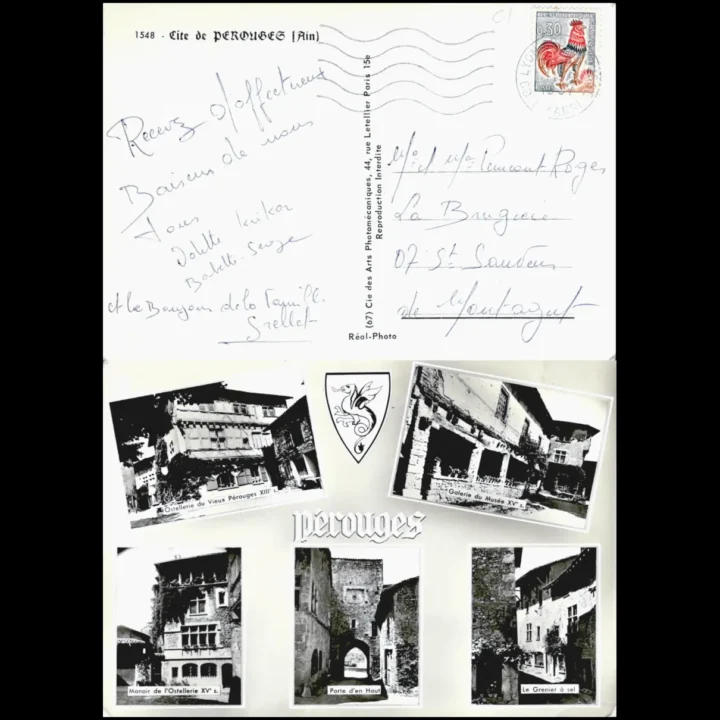 1548 - Cite de PEROUGES (Ain)
0,30
Recevez d'affectueux
Baisers de nous
Tous
et le Bonjour de la Famille
Grellet
(67) Cie des Arts Photomécaniques, 44, rue Letellier Paris 15e
Reproduction Interdite
Réal-Photo
Roger
La
07 St Sauveur
de Montagut
Ostellerie du Vieux Pérouges XIIIe
Galerie du Musée XVe s.
pérouges
Manoir de l'Ostellerie XVe s.
Porte d'en Haut
Le Grenier à sel